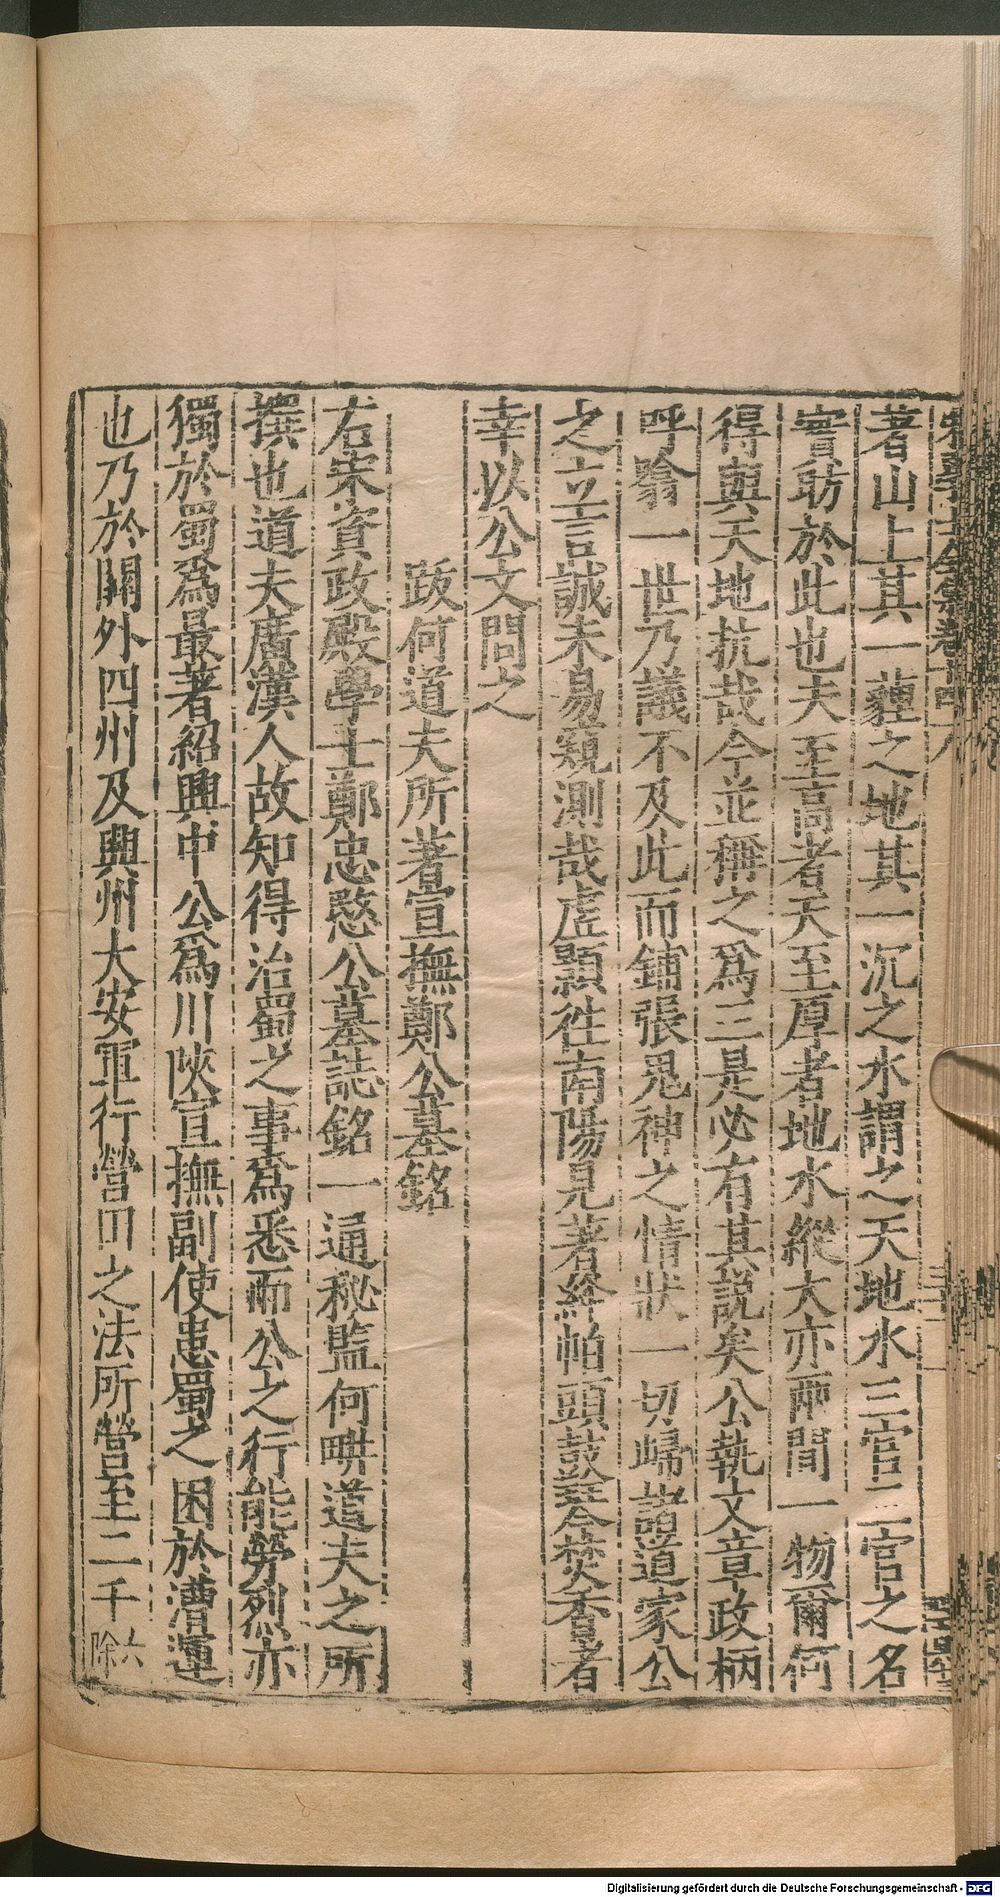 著山上其一薶之地其一沉之水謂之天地水三官三官之名
實昉於此也夫至高者天至厚者地水縱大亦兩間一物爾何
得與天地抗哉今並稱之爲三是必有其説矣公執文章政柄
呼翕一世乃議不及此而鋪張鬼神之情狀一切歸諸道家公
之立言誠未易窺測哉虛顯徃南陽見著絳帕頭鼓琴焚香者
幸以公文問之
跋何道夫所著宣撫鄭公墓銘
右宋資政殿學士鄭忠愍公墓誌銘一通秘監何畊道夫之所
撰也道夫廣漢人故知得治蜀之事爲悉而公之行能勞烈亦
獨於蜀爲最著紹興中公爲川陝宣撫副使患蜀之困於漕運
也乃於關外四州及興州大安軍行營田之法所營至二千六
除
Digitalisierung gefördert durch die Deutsche Forschungsgemeinschaft - DFG